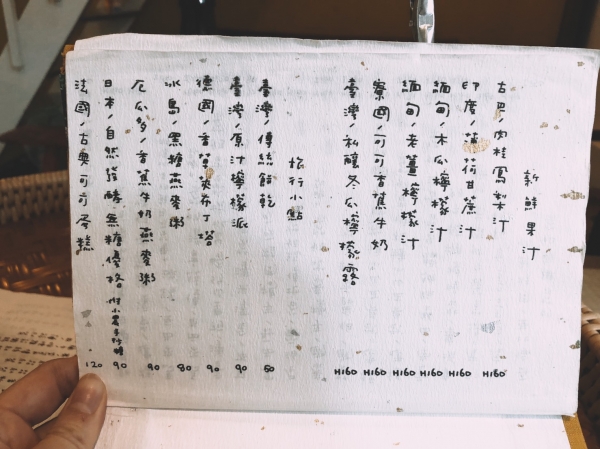 新鮮果汁
古巴/肉桂鳳梨汁 H160
印度/薄荷甘蔗汁 H160
緬甸/木瓜檸檬汁 H160
緬甸/老薑檸檬汁 H160
寮國/可可香蕉牛奶 H160
臺灣/私釀冬瓜檸檬露 H160
旅行小點
臺灣/傳統餅乾 50
臺灣/原汁檸檬派 90
德國/香草麥布丁塔 90
冰島/黑糖燕麥粥 80
厄瓜多/香蕉牛奶燕麥粥 90
日本/自然發酵無糖優格 附小農手作糖 90
法國/古典可可蛋糕 120